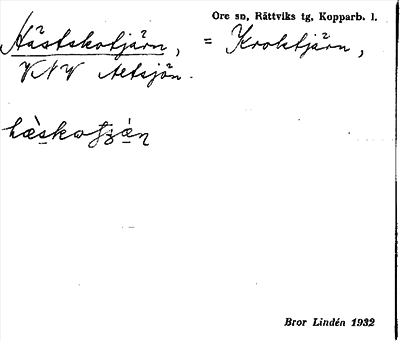 Ore sn, Rättviks tg, Kopparb. l.
Hästskotjärn, = Kroktjärn,
VNV Aetsjön.
Bror Lindén 1932